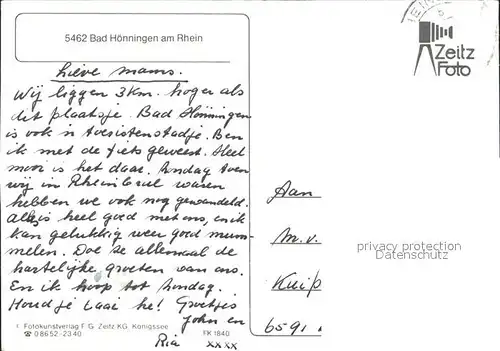 5462 Bad Hönningen am Rhein
Lieve mams.
Wij liggen 3 km. hoger als
dit plaatsje. Bad Hönningen
is ook 'n toeristenstadje. Ben
ik met de fiets geweest. Heel
mooi is het daar. Zondag toen
wij in Rheinbrul waren
hebben we ook nog gewandeld.
Alles is heel goed met ons, en ik
kan gelukkig weer goed mum-
melen. Doe ze allemaal de
hartelijke groeten van ons.
En ik hoop tot Zondag.
Houd je taai he! Groetjes
John en
Ria xxxx
Fotokunstverlag F. G. Zeitz KG, Königssee
☎ 0 86 52 - 23 40
FK 1840
Zeitz
Foto
Aan
M.v.
privacy protection
www.ansichtskarten-center.de
Kuip
6591